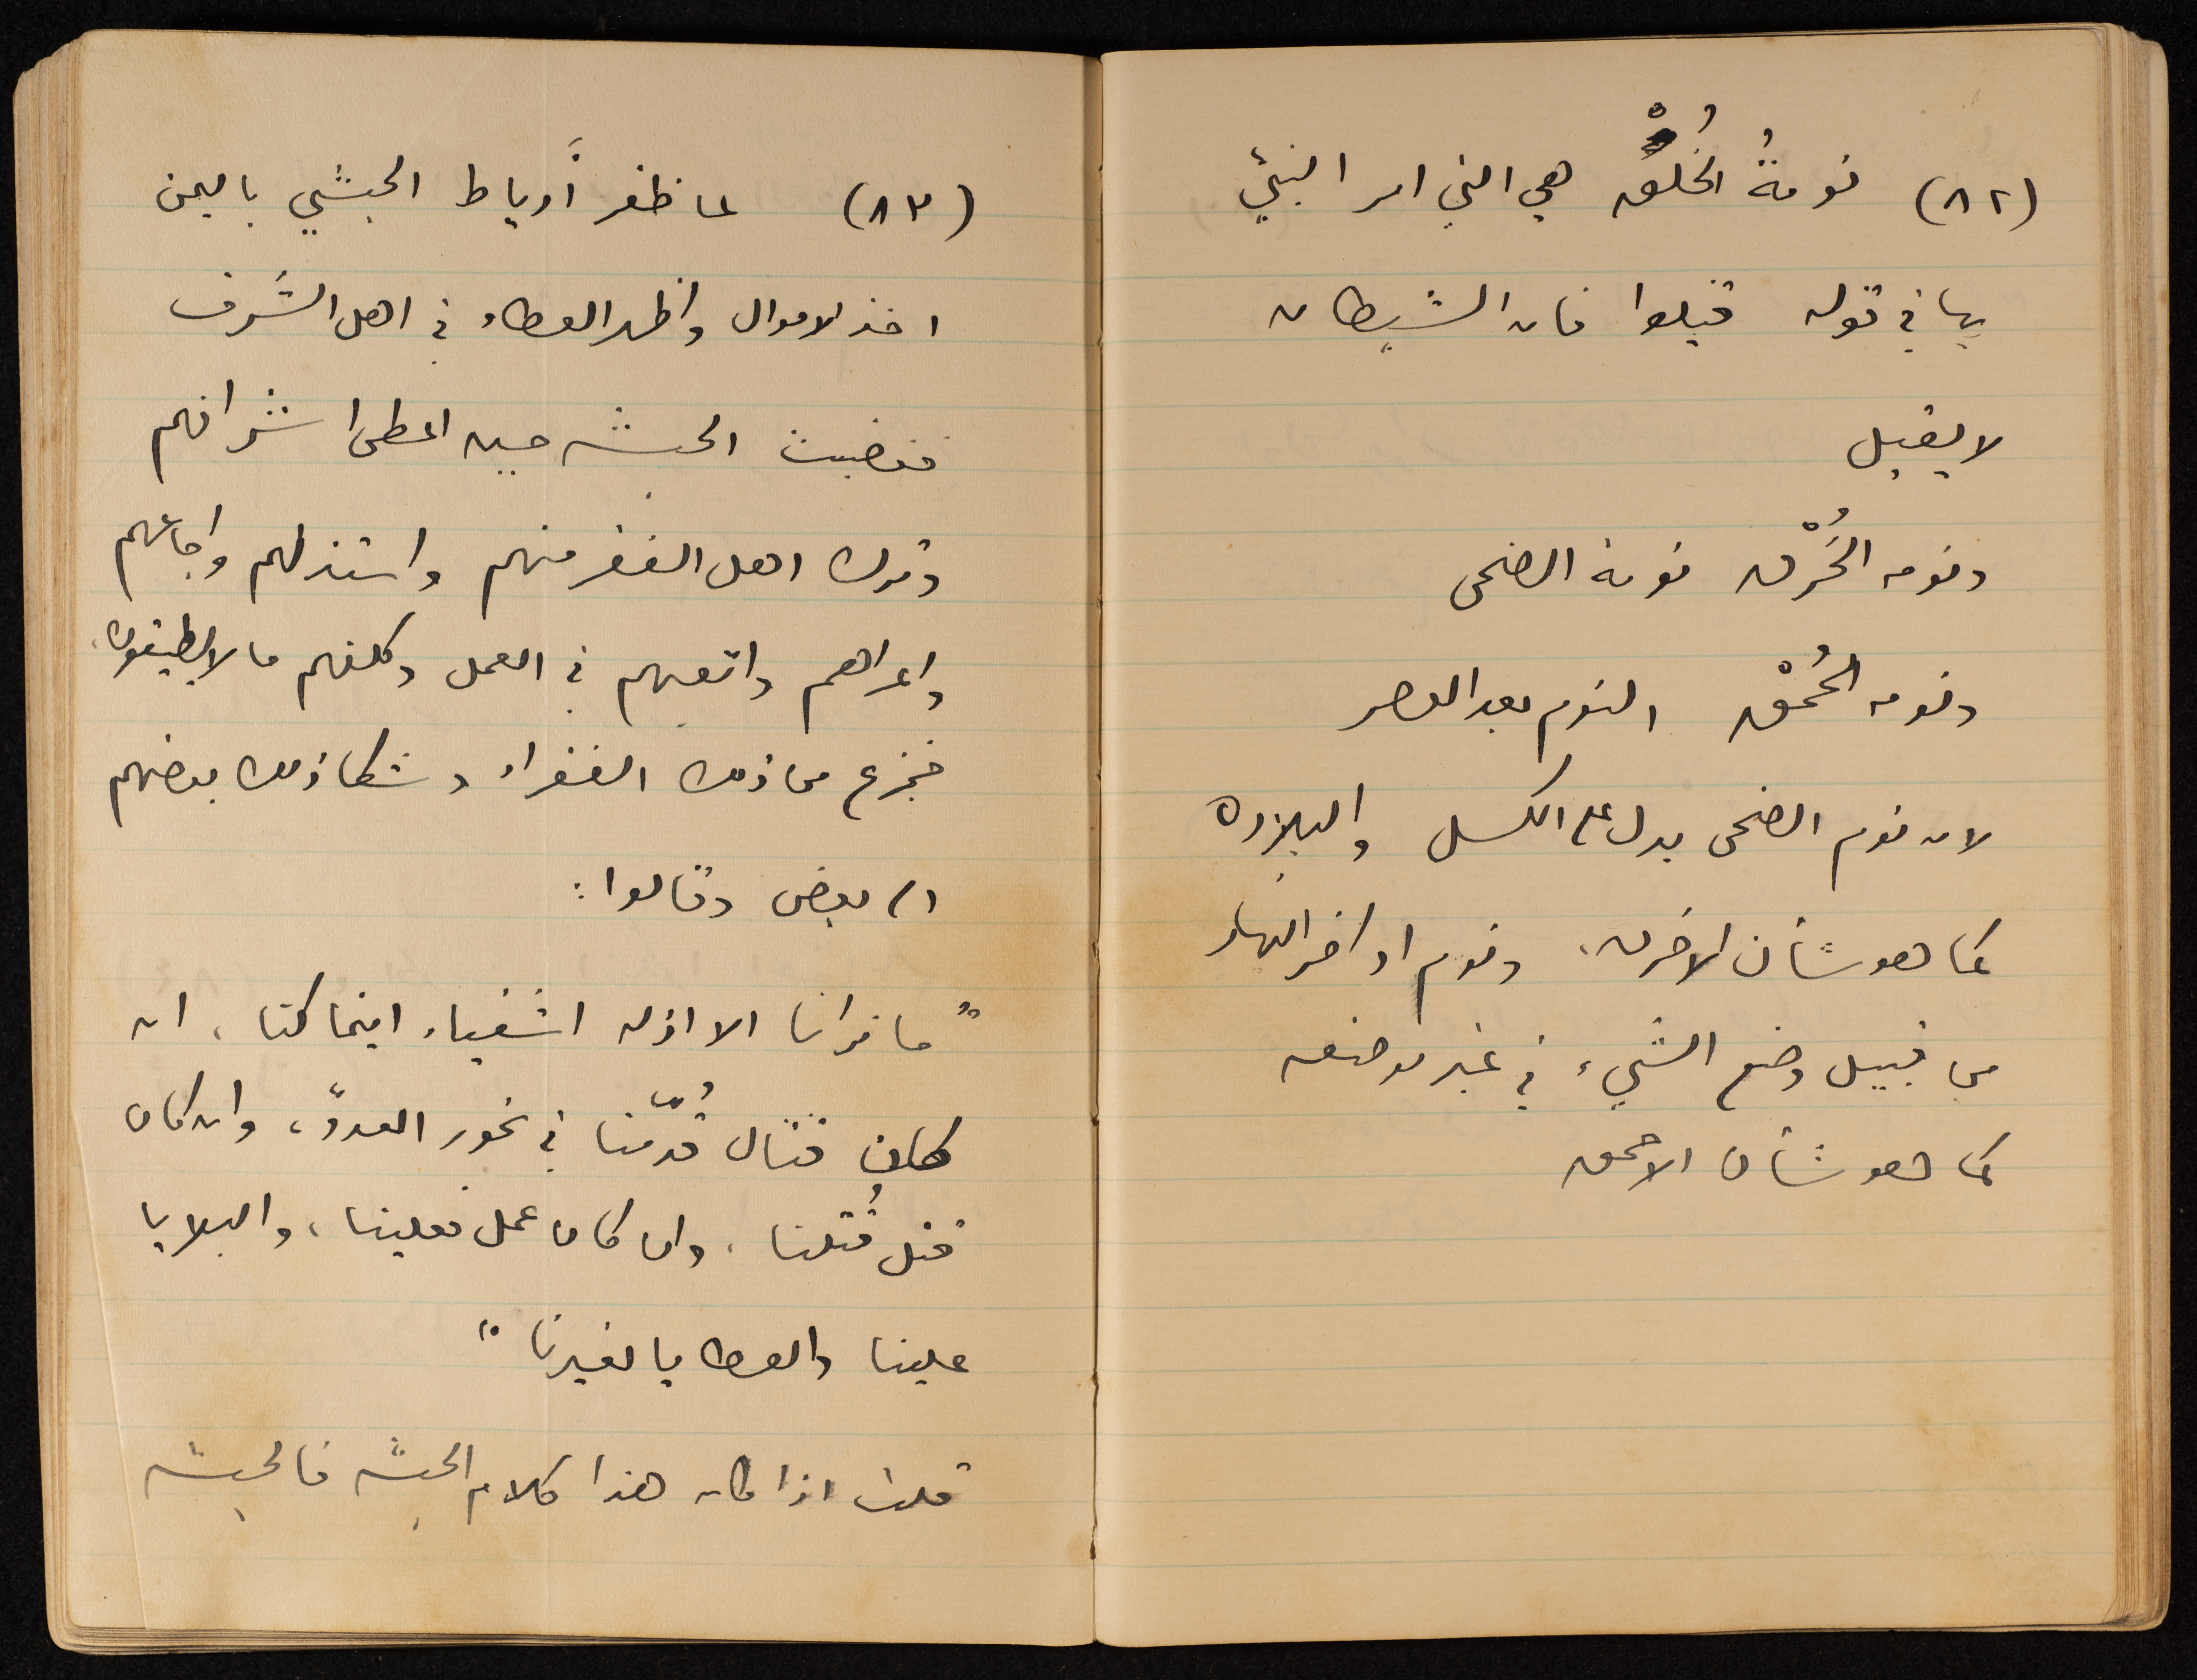 (٨٢) نومةُ الخُلُق هي التي امر النبيّ
بها في قوله قيلوا فان الشيطان
لا يقيل
ونومه الخُرْق نومة الضحى
ونومه الحُمْق النوم بعد العصر
لان نوم الضحى يدل على الكسل والبلاده
كما هو شأن الاخرق، ونوم اواخر النهار
من قبيل وضع الشيء في غير موضعه
كما هو شأن الاحمق
(٨٣) لما ظفر أَرياط الحبشي باليمن
اخذ الاموال واظهر العطاء في اهل الشَّرف
فغضبت الحبشه حين اعطى اشرافهم
وترك اهل الفقر منهم واستذلهم واجاعهم
واعراهم واتعبهم في العمل وكلفهم ما لا يطيقون،
فجزع من ذلك الفقراء وشكا ذلك بعضهم
الى بعض وقالوا:
"ما نرانا الا اذله اشقياء اينما كنا، ان
كان قتال قُدّمنا في نحور العدوّ، وان كان
قتل قُتلنا، وان كان عمل فعلينا، والبلايا
علينا والعطايا لغيرنا"
قلت اذا كان هذا كلام الحبشه فالحبشه